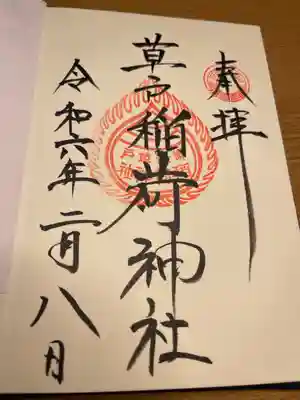 奉拝
草戸稲荷神社
令和六年二月八日